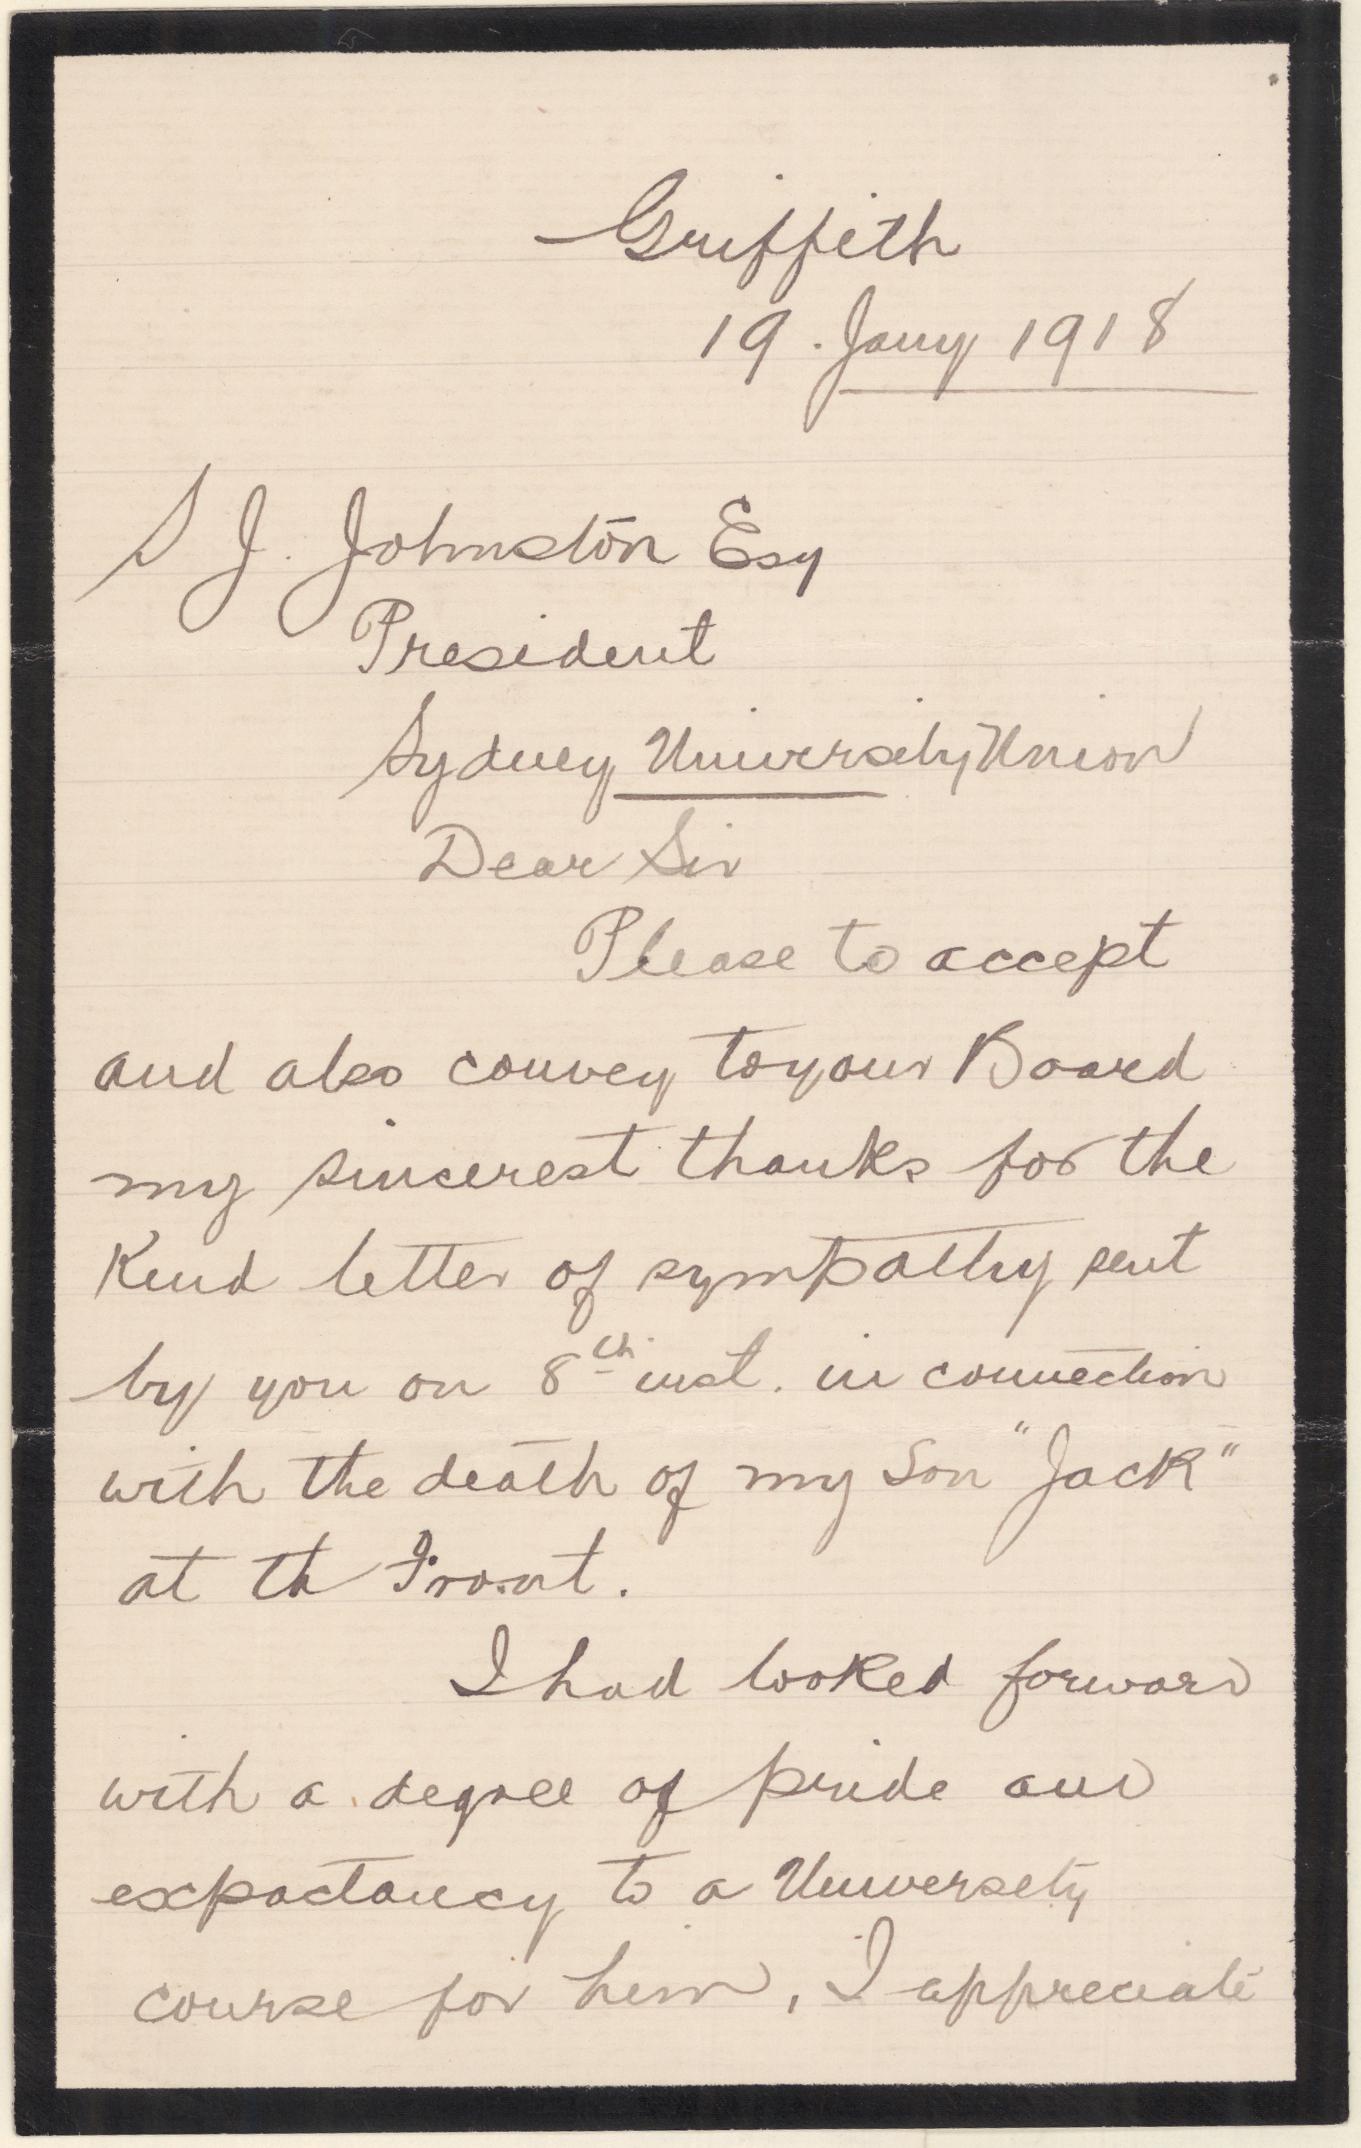 Griffith
19. Jany 1918
S J. Johnston Esq
President
Sydney University Union
Dear Sir
Please to accept
and also convey to your Board
my sincerest thanks for the
Kind letter of sympathy sent
by you on 8th inst. in connection
with the death of my Son "Jack"
at th Front.
I had looked forward
with a degree of pride and
expactancy to a University
course for him, I appreciate